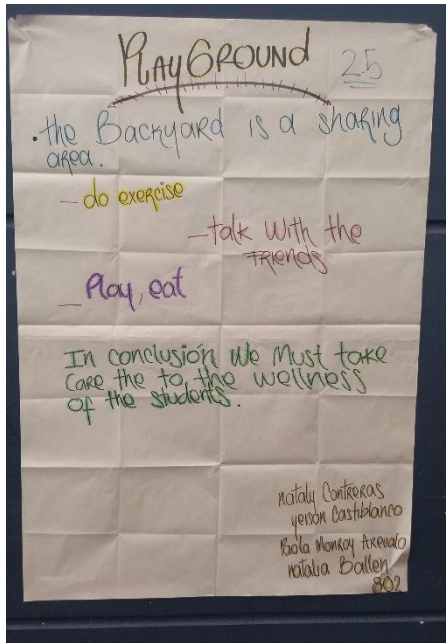 PLAYGROUND
25
. the Backyard is a sharing
area.
- do exercise
- talk With the
FRIENDS
- Play, eat
In conclusión We Must take
care the to the wellness
of the students.
nataly Contreras
yeison Castiblanco
Paola Monroy Arevalo
natalia Ballen
802